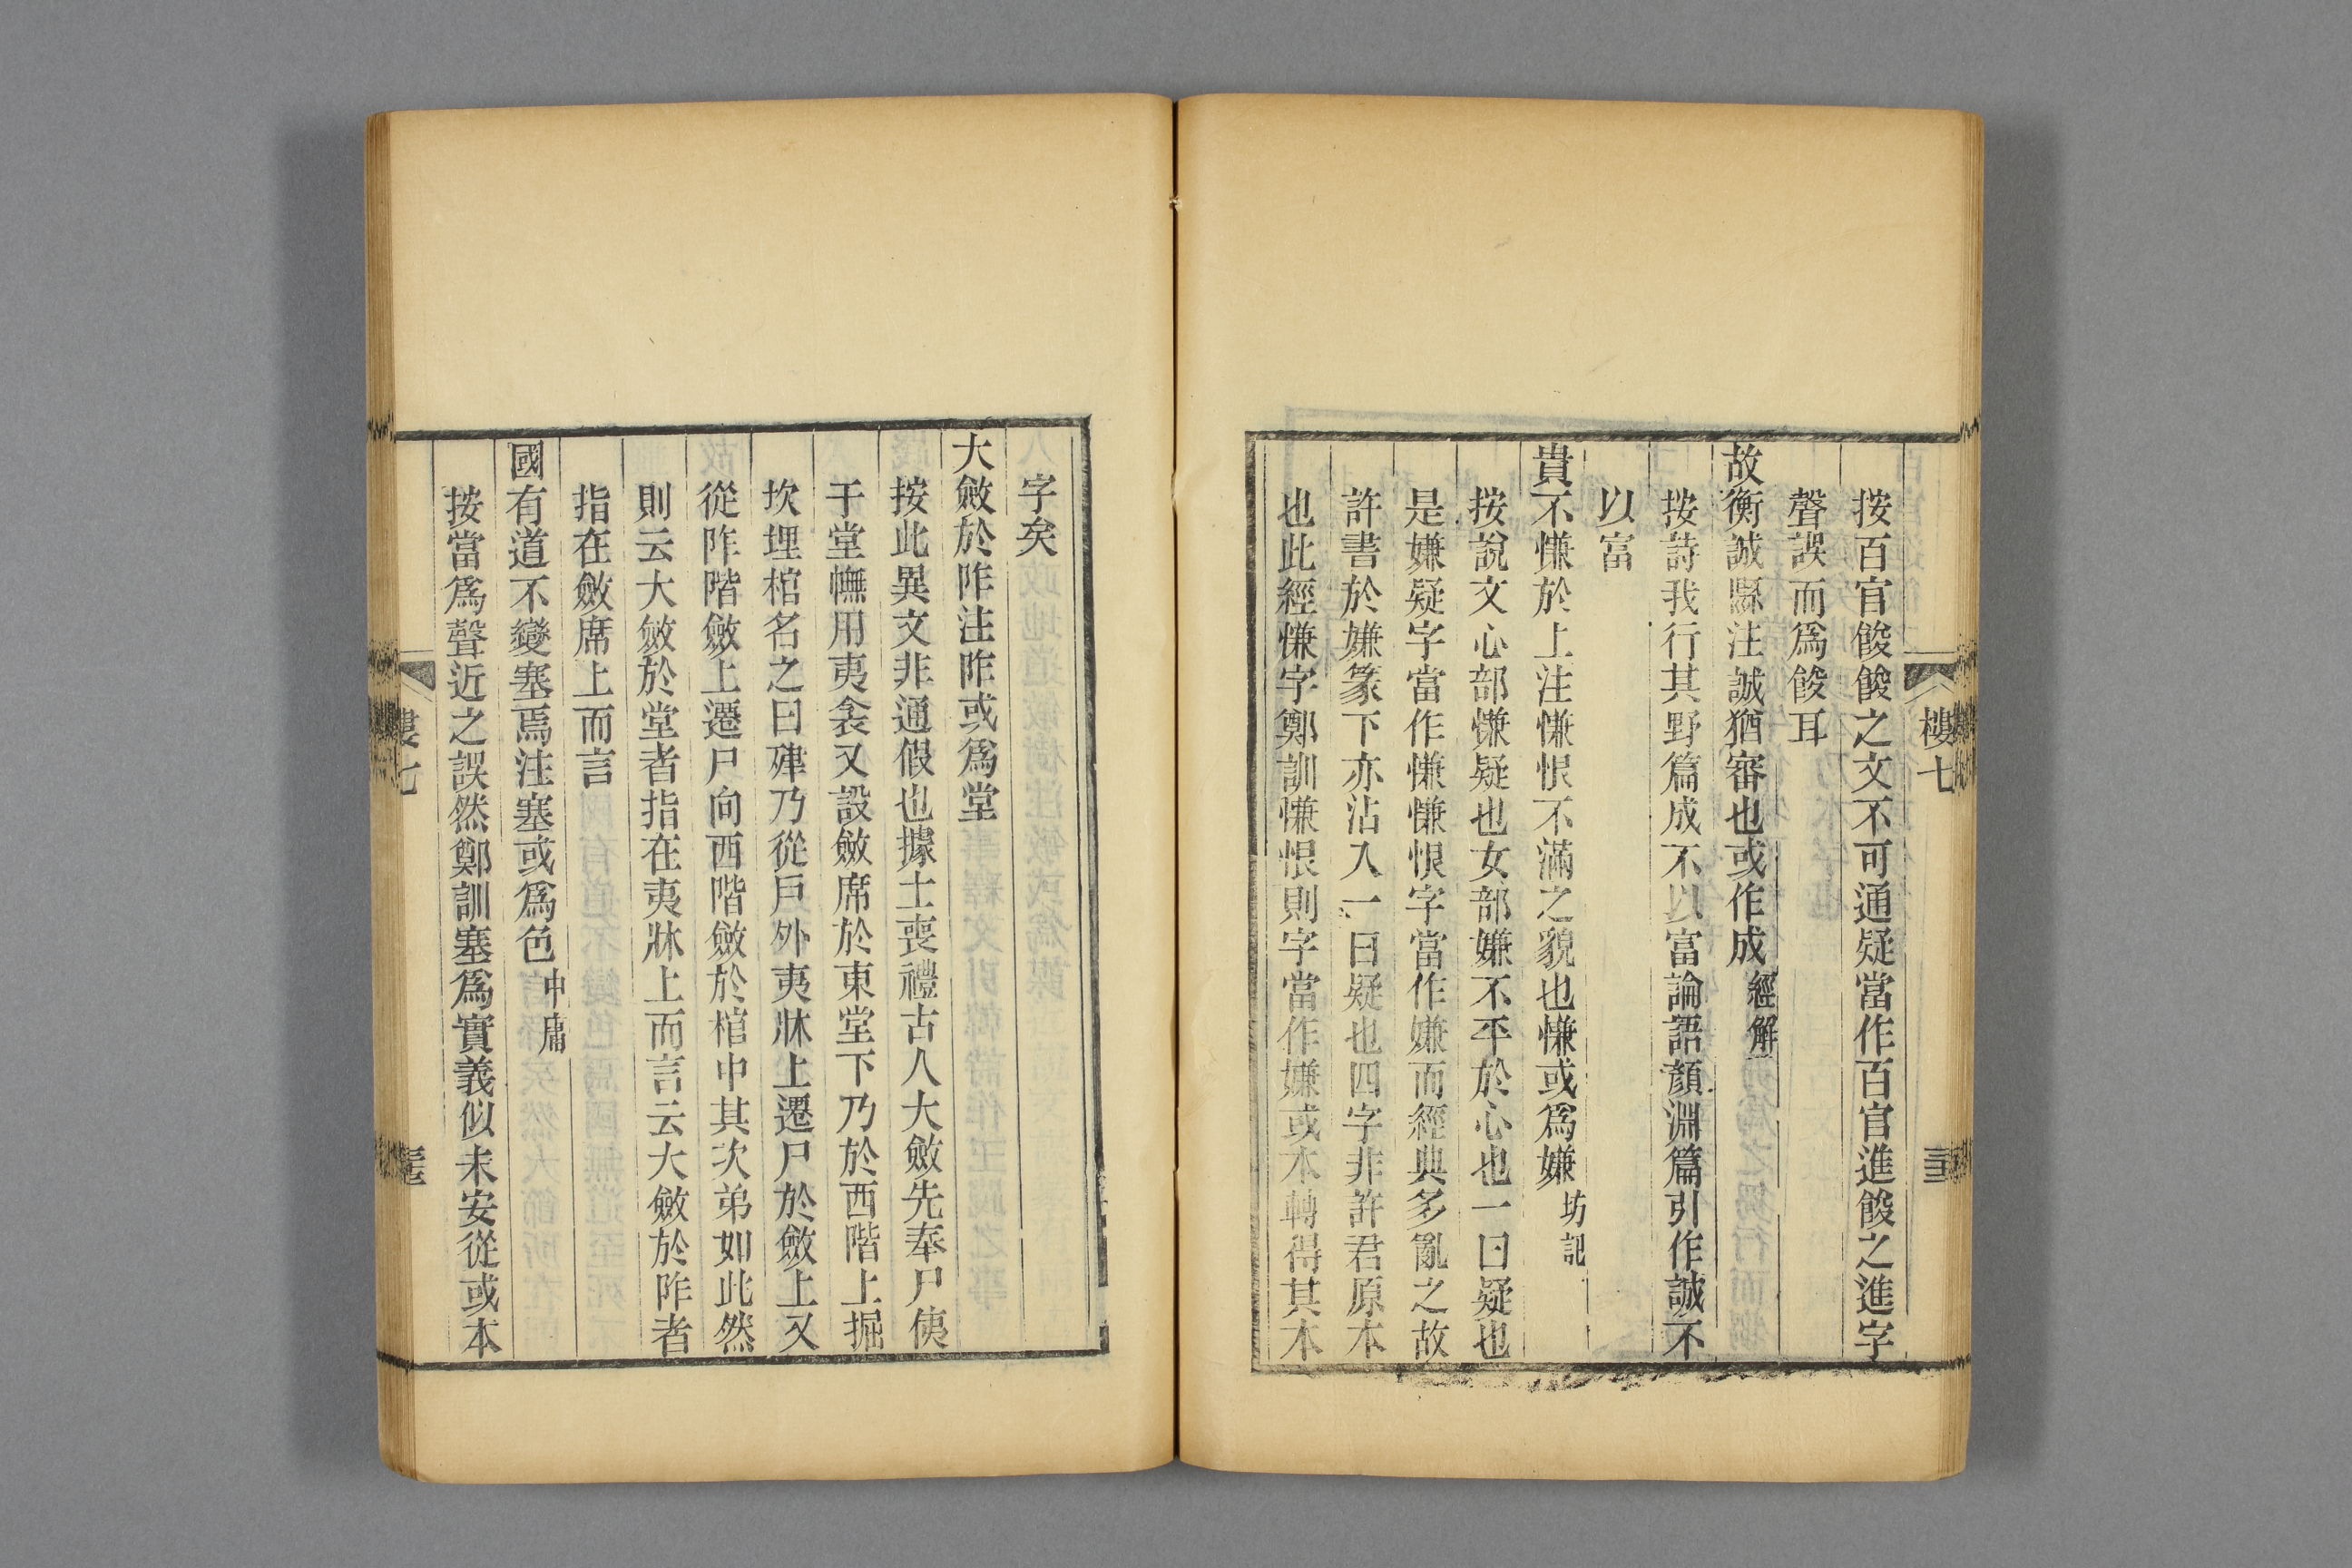 樓七
按百官餕餕之文不可通疑當作百官進餕之進字
聲誤而爲餕耳
故衡誠縣注誠猶審也或作成經解
按詩我行其野篇成不以富論語顏淵篇引作誠不
以富
貴不慊於上注慊恨不滿之貌也慊或爲嫌坊記
按說文心部慊疑也女部嫌不平於心也一曰疑也
是嫌疑字當作慊慊恨字當作嫌而經典多亂之故
許書於嫌篆下亦沾入一曰疑也四字非許君原本
也此經慊字鄭訓慊恨則字當作嫌或本轉得其本
字矣
大斂於阼注阼或爲堂
按此異文非通假也據士喪禮古人大斂先奉尸侇
于堂幠用夷衾又設斂席於東堂下乃於西階上掘
坎埋棺名之曰殔乃從戶外夷牀上遷尸於斂上又
從阼階斂上遷尸向西階斂於棺中其次弟如此然
則云大斂於堂者指在夷牀上而言云大斂於阼者
指在斂席上而言
國有道不變塞焉注塞或爲色中庸
按當爲聲近之誤然鄭訓塞爲實義似未安從或本
樓七